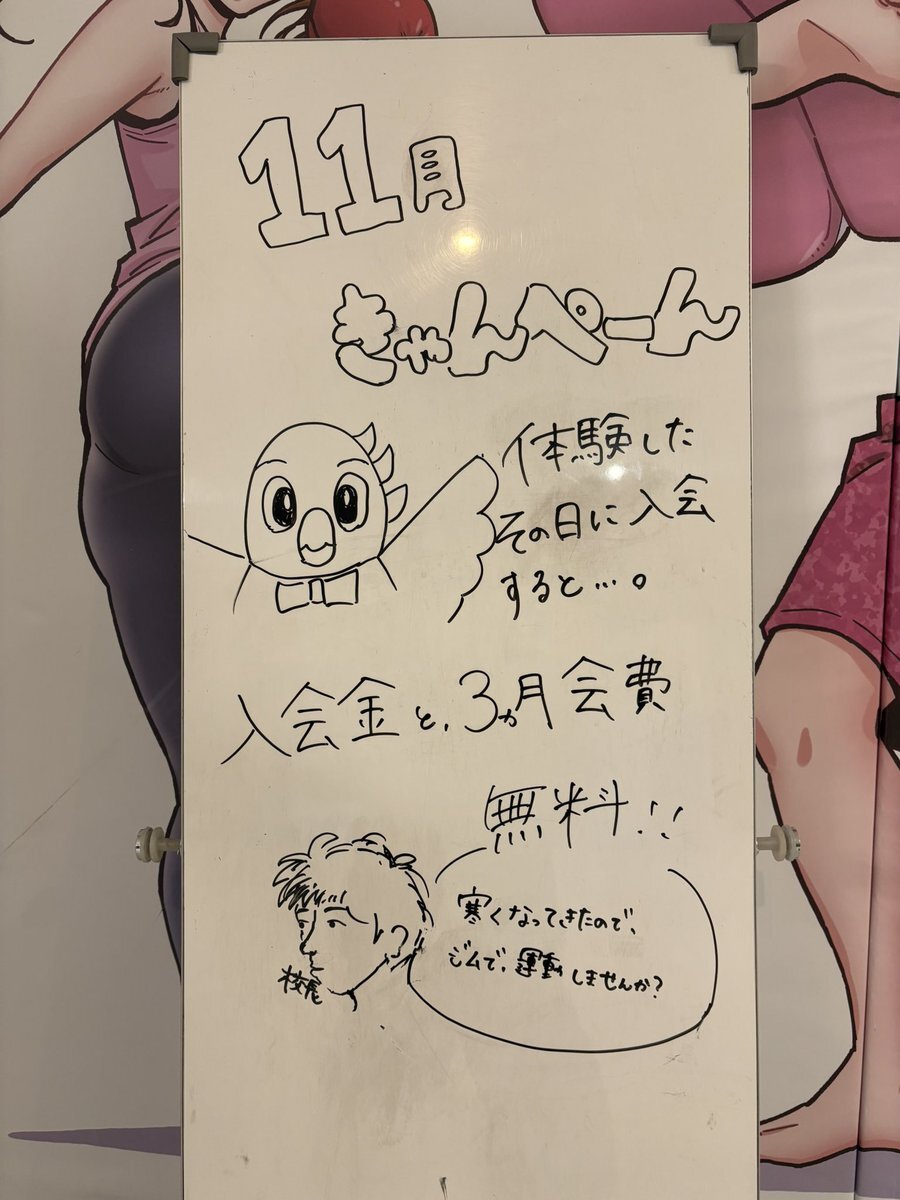 11月
きゃんぺーん
体験した
その日に入会
すると…。
入会金と、3ヵ月会費
無料!!
寒くなってきたので、
ジムで、運動しませんか?